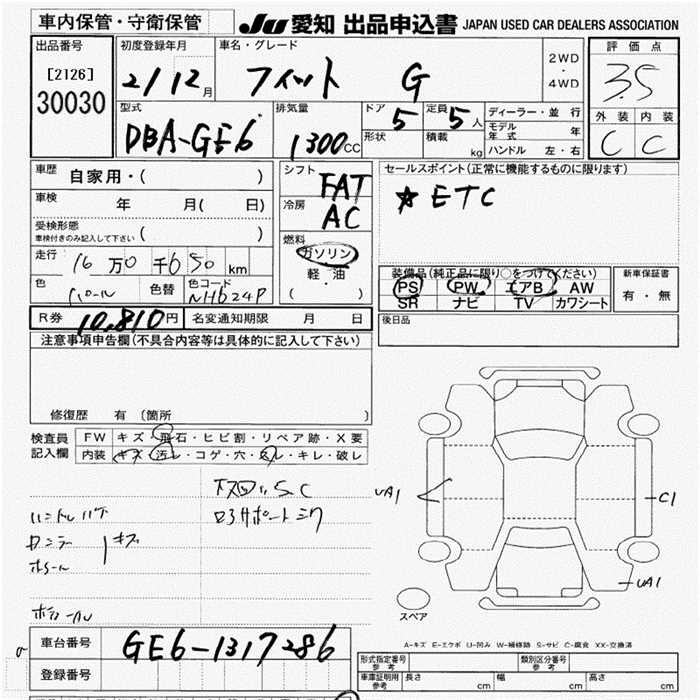 車内保管・守衛保管
JU 愛知 出品申込書 JAPAN USED CAR DEALERS ASSOCIATION
出品番号
[2126]
30030
初度登録年月
21/12月
車名・グレード
フィット G
2WD
・
4WD
評価点
3.5
外装 内装
C C
型式
DBA-GE6
排気量
1300cc
ドア
5
定員
5人
形状
積載
kg
ディーラー・並行
モデル年式 年
ハンドル 左・右
車歴
自家用・( )
車検
年 月( 日)
受検形態
車検付きのみ記入して下さい ( )
走行
16万0千650km
色
パール
色替
色コード
NH624P
シフト
FAT
冷房
AC
燃料
ガソリン
軽・油
( )
セールスポイント(正常に機能するものに限ります)
☆ETC
装備品(純正品に限り○をつけてください)
PS PW エアB AW
SR ナビ TV カワシート
新車保証書
有・無
R券 10,810円 名変通知期限 月 日
後日品
注意事項申告欄(不具合内容等は具体的に記入して下さい)
修復歴 有 〔箇所 〕
検査員
記入欄
FW キズ・飛石・ヒビ割・リペア跡・X要
内装 キズ・汚レ・コゲ・穴・スレ・キレ・破レ
下回リSC
ロアサポートミク
ハンドル ハゲ
キズ
UA1
C1
UA1
スペア
A-キズ E-エクボ U-凹み W-補修跡 S-サビ C-腐食 XX-交換済
車台番号
GE6-1317286
登録番号
形式指定番号
参考
類別区分番号
参考
車庫証明用
参考
長さ cm 幅 cm 高さ cm